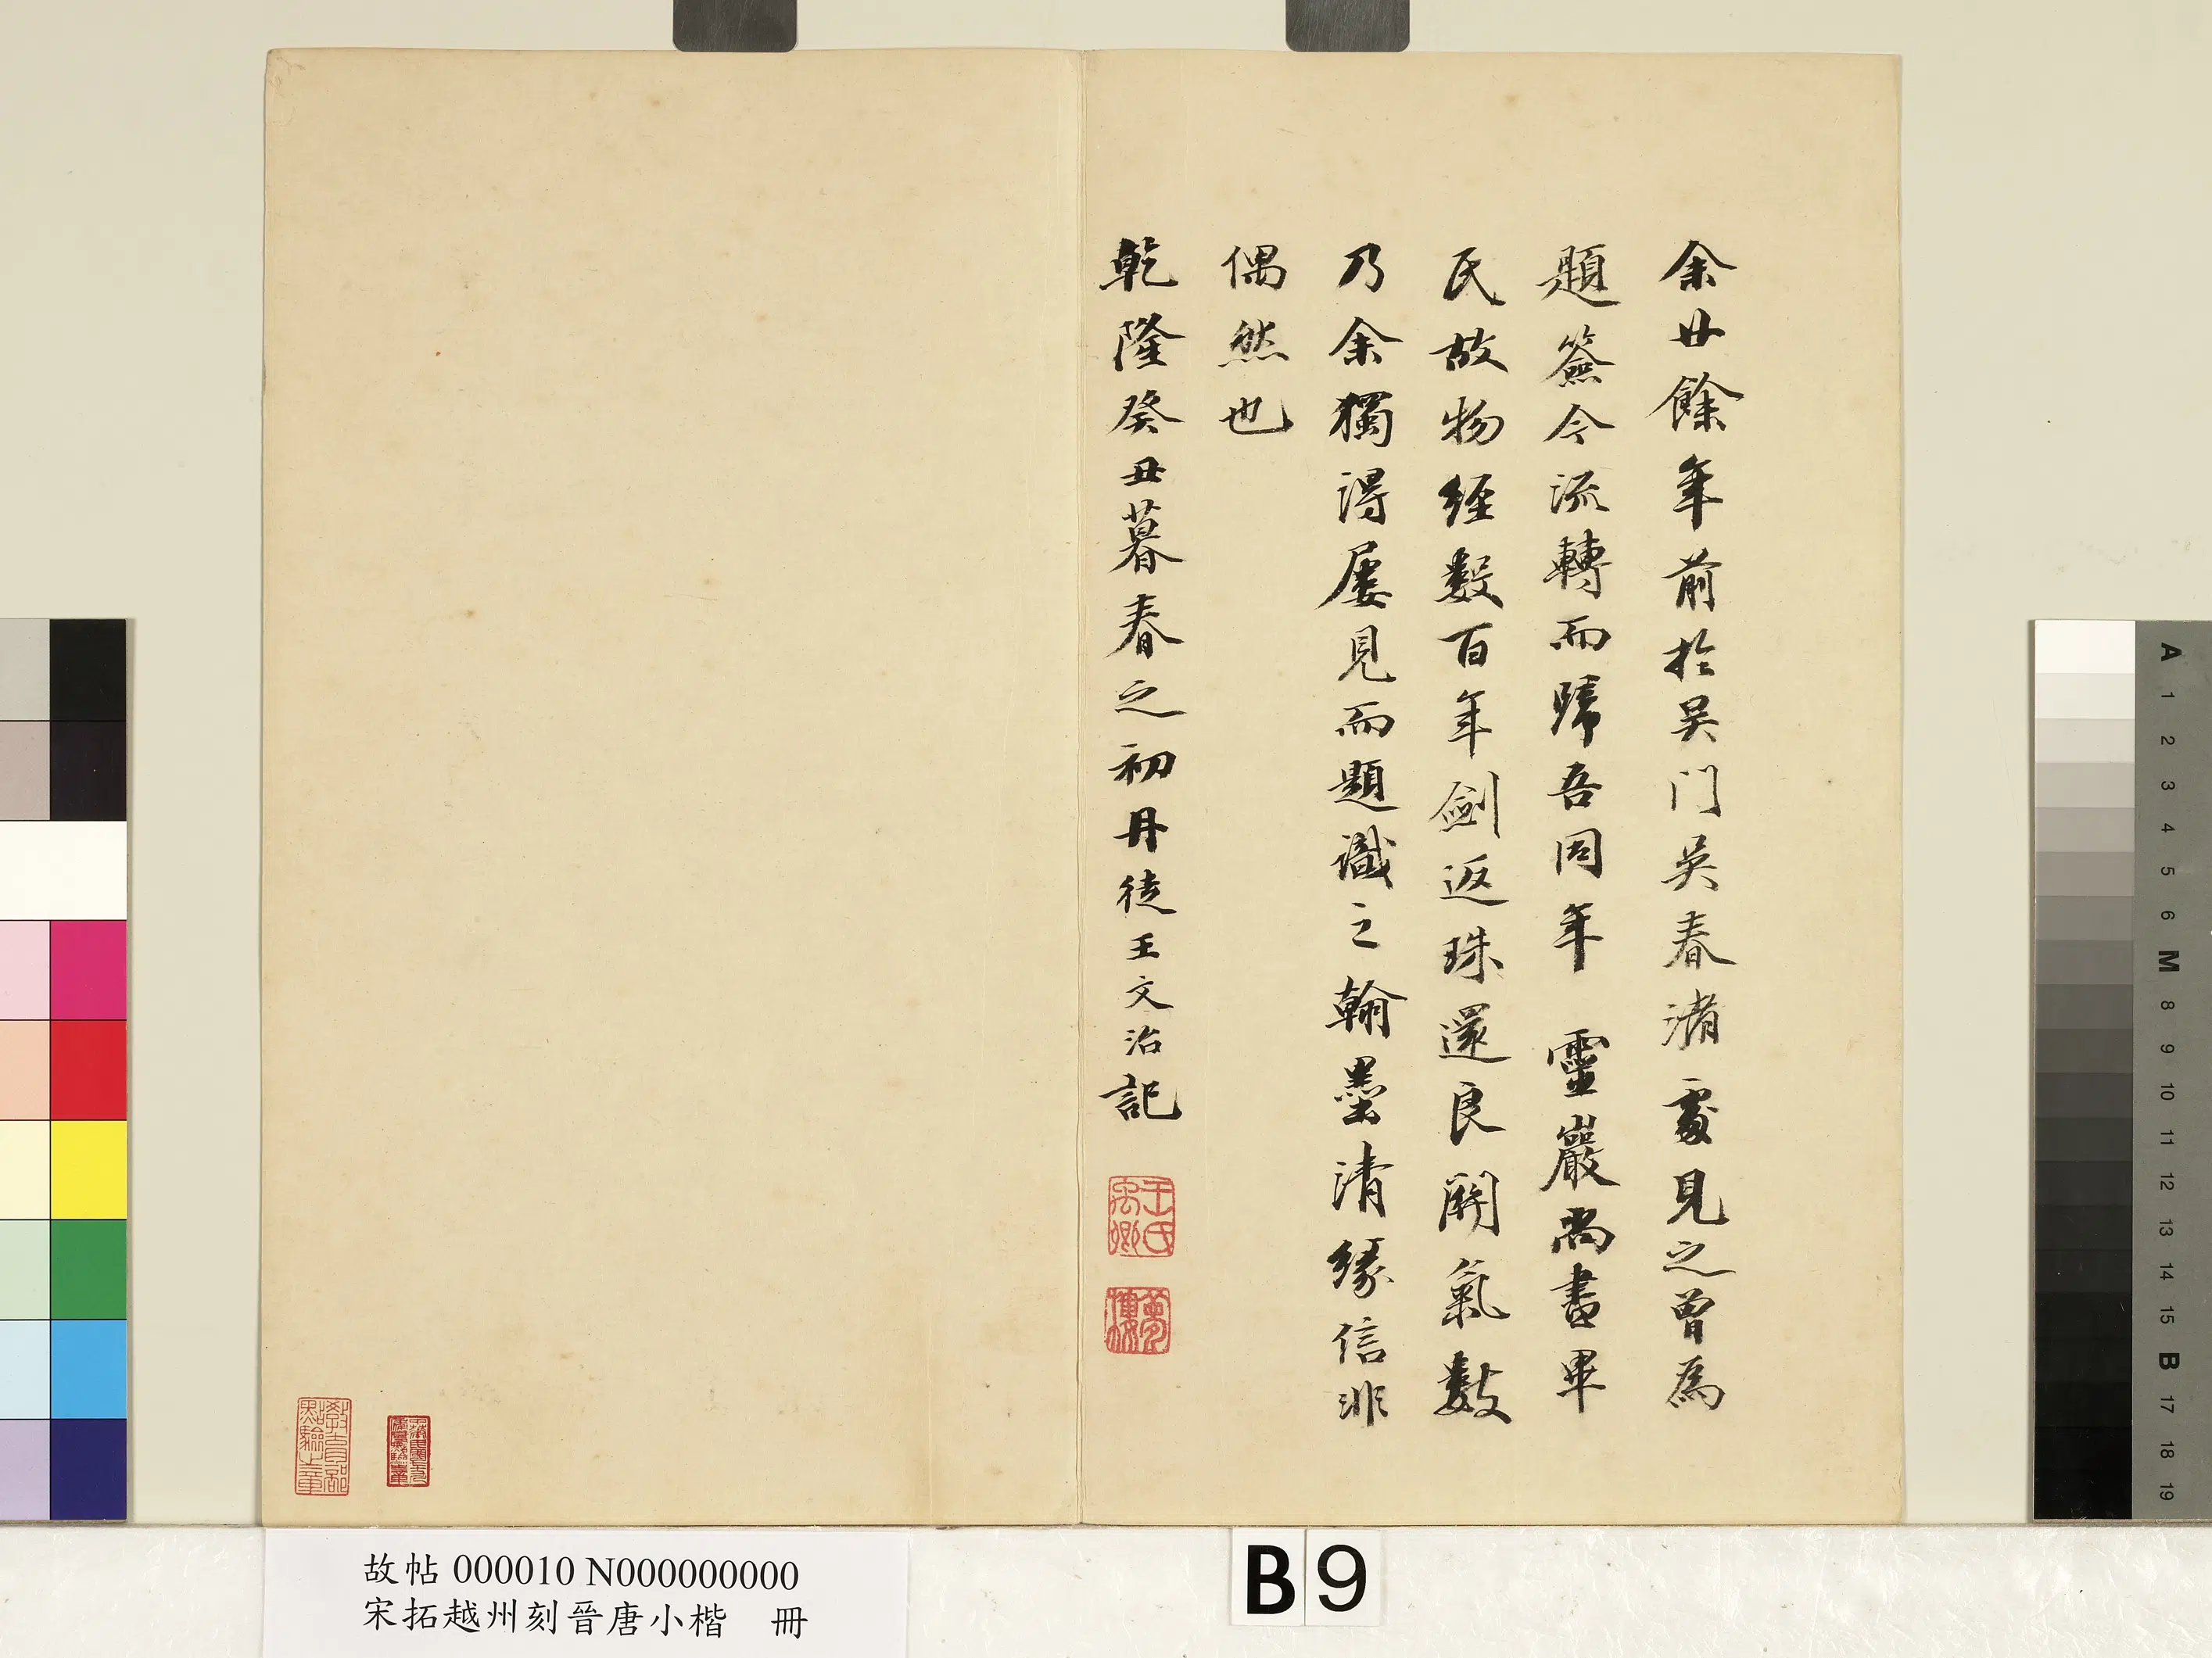 余廿餘年前於吴門吳春渚處見之曾爲
題簽今流轉而歸吾同年 靈巖尚書畢
氏故物經數百年劍返珠還良關氣數
乃余獨得屢見而題識之翰墨清緣信非
偶然也
乾隆癸丑暮春之初丹徒王文治記
王氏禹卿
夢樓
教育部點驗之章
故帖 000010 N000000000
宋拓越州刻晉唐小楷 冊
B 9
A
1
2
3
4
5
6
M
8
9
10
11
12
13
14
15
B
17
18
19